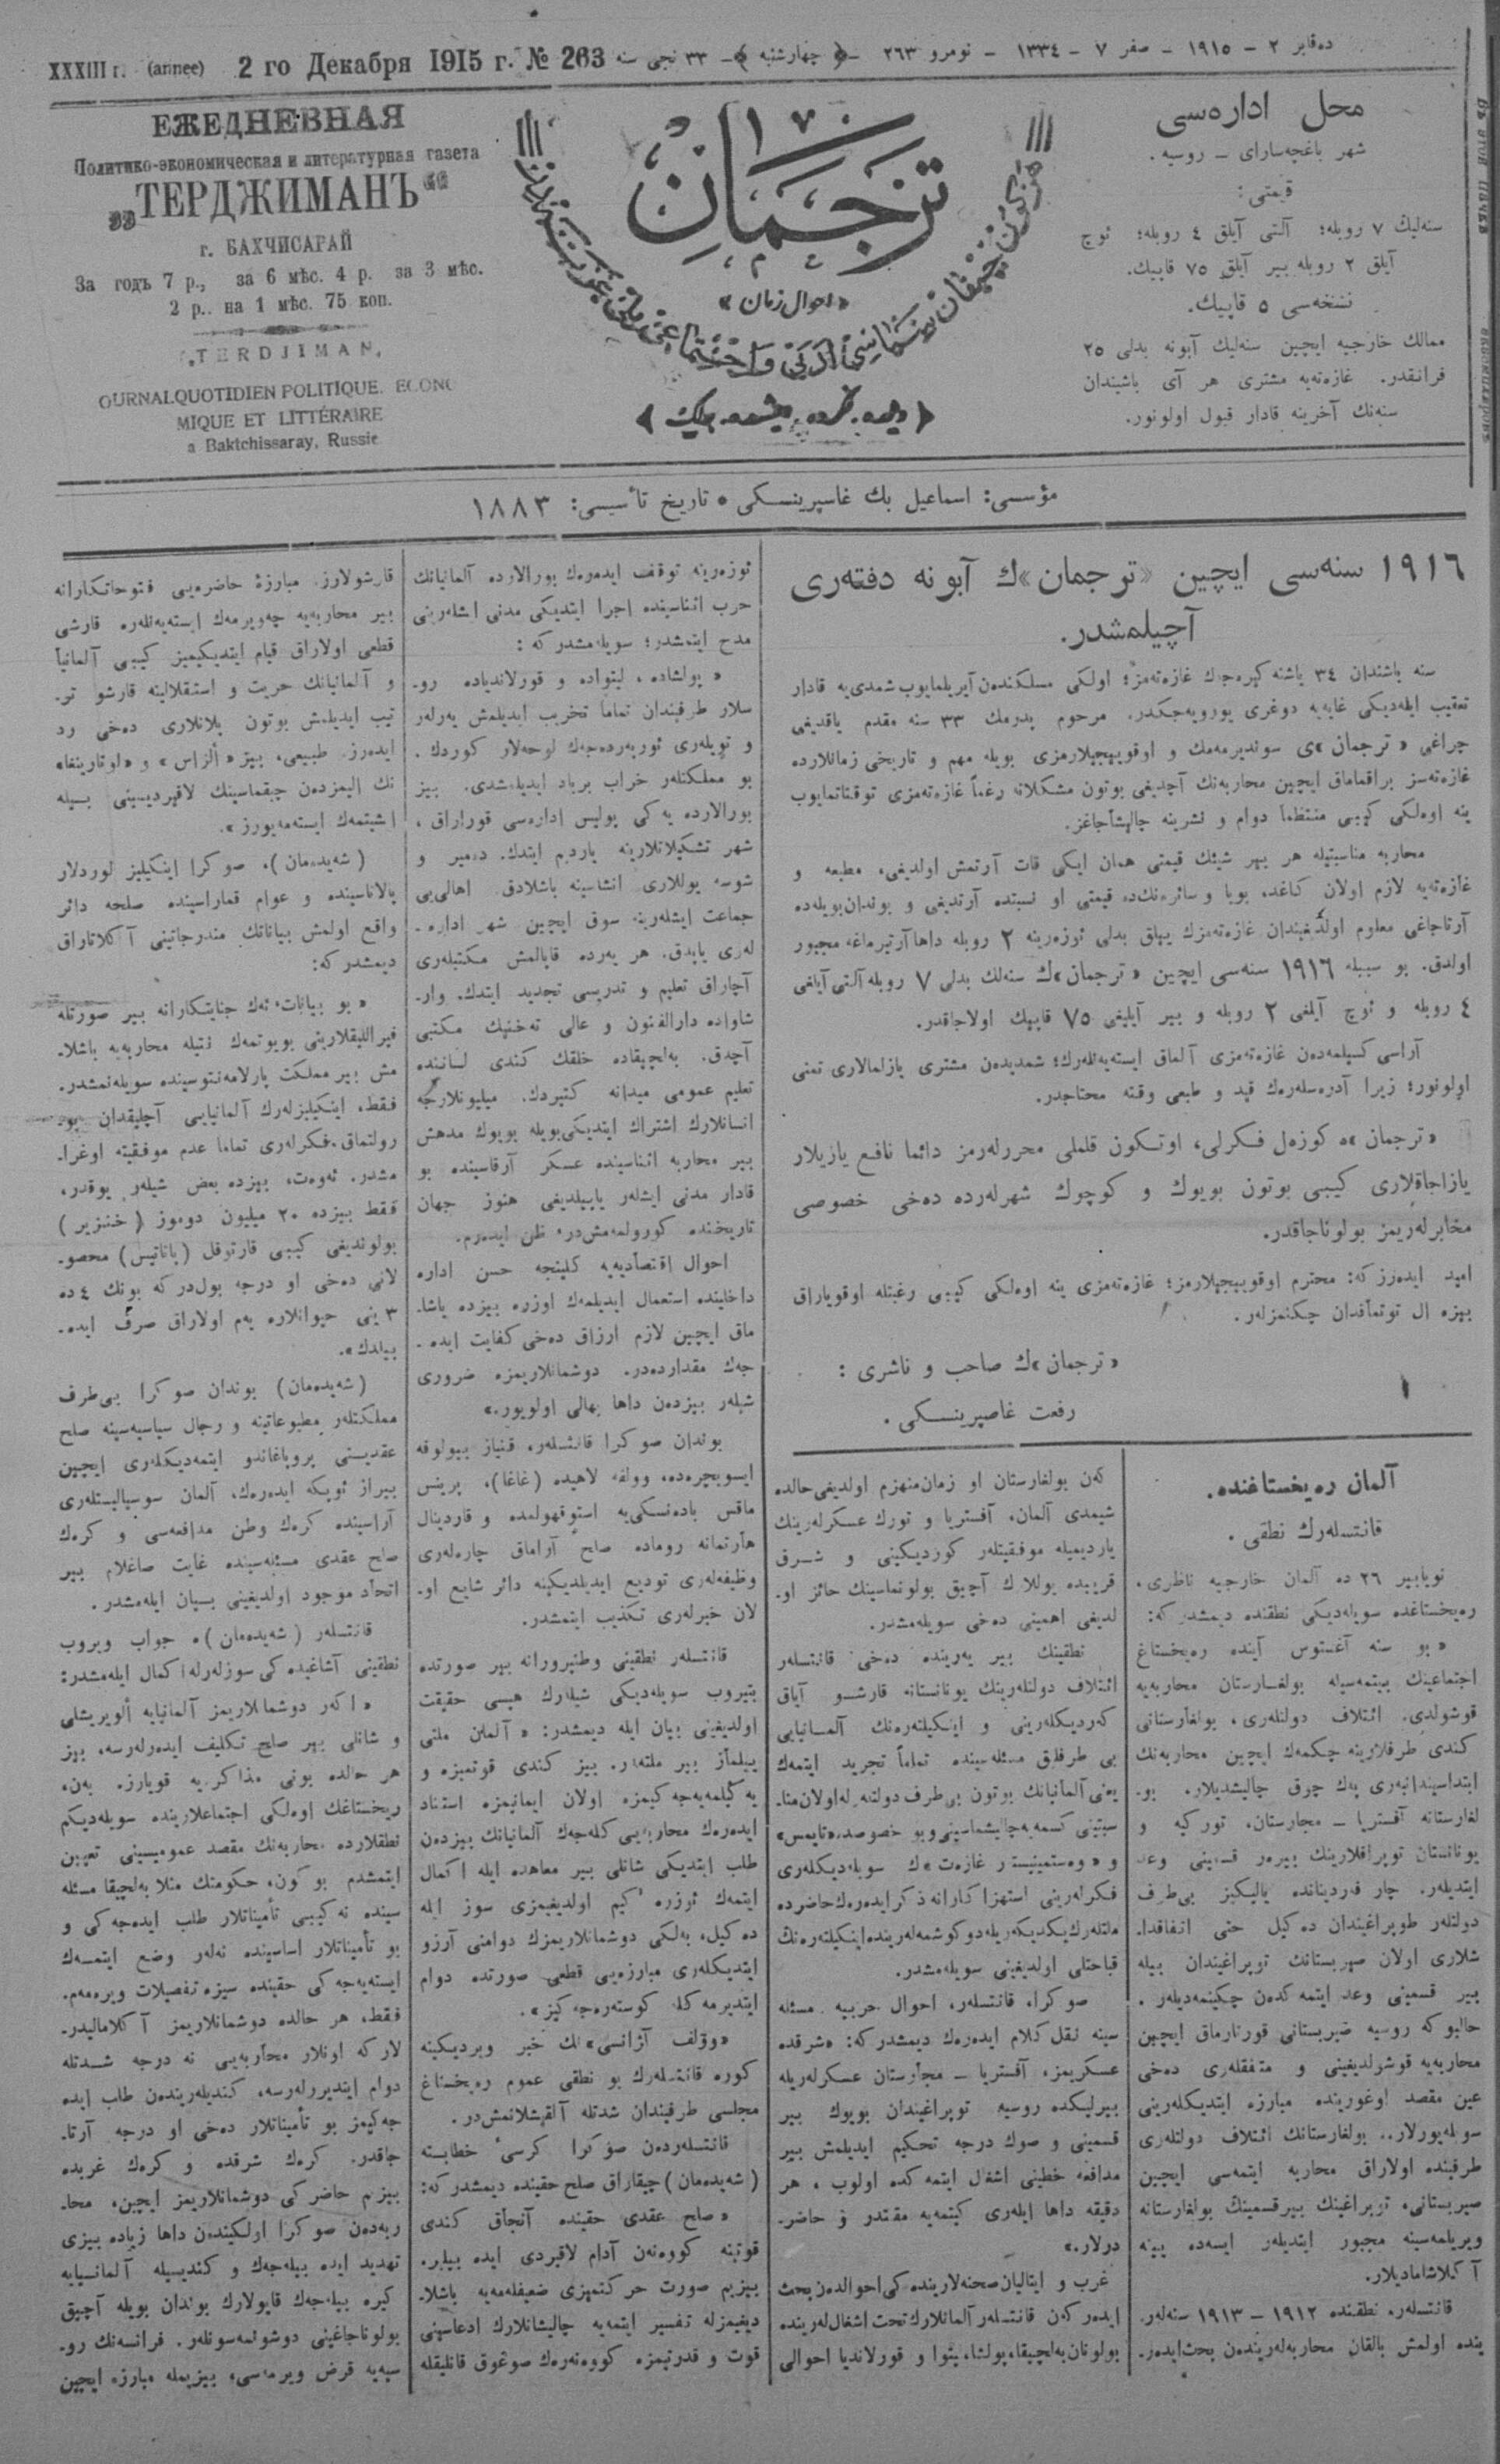 XXXIII г. (annee) 2 го Декабря 1915 г. № 263 ٣٣ نجی سنه -﴿ چهارشنبه ﴾- نومرو ٢٦٣ - صفر ٧ - ١٣٣٤ - ده‌قابر ٢ - ١٩١٥
ЕЖЕДНЕВНАЯ
Политико-экономическая и литературная газета
„ТЕРДЖИМАНЪ“
г. БАХЧИСАРАЙ
За годъ 7 р., за 6 мѣс. 4 р. за 3 мѣс.
2 р.. на 1 мѣс. 75 коп.
„TERDJIMAN„
OURNALQUOTIDIEN POLITIQUE. ECONO
MIQUE ET LITTÉRAIRE
a Baktchissaray, Russie
ترجمان
«احوال زمان»
محل اداره‌سی
شهر باغچه‌سارای – روسیه.
قیمتی:
سنه‌لیك ٧ روبله؛ آلتی آیلق ٤ روبله؛ ئوچ
آیلق ٢ روبله بیر آیلق ٧٥ قاپیك.
نسخه‌سی ٥ قاپیك.
ممالك خارجیه ایچین سنه‌لیك آبونه بدلی ٢٥
فرانقدر. غازه‌ته‌یه مشتری هر آی باشیندان
سنه‌نك آخرینه قادار قبول اولونور.
مؤسسی: اسماعیل بك غاسپرینسكی • تاریخ تأسیسی: ١٨٨٣
١٩١٦ سنه‌سی ایچین «ترجمان»ك آبونه دفته‌ری
آچیلمشدر.
سنه باشندان ٣٤ یاشنه گیره‌جك غازه‌ته‌مز؛ اولكی مسلكندن آیریلمایوب شمدی‌یه قادار
تعقیب ایله‌دیكی غایه‌یه دوغری یورویه‌جكدر. مرحوم پدرمك ٣٣ سنه مقدم یاقدیغی
چراغی «ترجمان»ی سوندیرمه‌مك و اوقویبجیلارمزی بویله مهم و تاریخی زمانلارده
غازه‌ته‌سز براقماماق ایچین محاربه‌نك آچدیغی بوتون مشكلاته رغماً غازه‌ته‌مزی توقتاتمایوب
ینه اوه‌لكی كیبی منتظماً دوام و نشرینه چالیشاجاغز.
محاربه مناسبتیله هر بیر شیئك قیمتی همان ایكی قات آرتمش اولدیغی، مطبعه و
غازه‌ته‌یه لازم اولان كاغد، بویا و سائره‌نك‌ده قیمتی او نسبتده آرتدیغی و بوندان بویله‌ده
آرتاجاغی معلوم اولدیغندان غازه‌ته‌مزك ییلق بدلی ئوزه‌رینه ٢ روبله داها آرتیرماغه مجبور
اولدق. بو سببله ١٩١٦ سنه‌سی ایچین «ترجمان»ك سنه‌لك بدلی ٧ روبله آلتی آیلغی
٤ روبله و ئوچ آیلغی ٢ روبله و بیر آیلیغی ٧٥ قاپیك اولاجاقدر.
آراسی كسیلمه‌دن غازه‌ته‌مزی آلماق ایسته‌یه‌نله‌رك؛ شمدیدن مشتری یازلمالاری تمنی
اولونور؛ زیرا آدره‌سله‌رك قید و طبعی وقته محتاجدر.
«ترجمان»ه كوزه‌ل فكرلی، اوتكون قلملی محررله‌رمز دائما نافع یازیلار
یازاجاقلاری كیبی بوتون بویوك و كوچوك شهرله‌رده ده‌خی خصوصی
مخابرله‌ریمز بولوناجاقدر.
امید ایده‌رزكه: محترم اوقویبجیلارمز؛ غازه‌ته‌مزی ینه اوه‌لكی كیبی رغبتله اوقویاراق
بیزه ال توتماقدان چكنمزلر.
«ترجمان»ك صاحب و ناشری :
رفعت غاصپرینسكی .
آلمان ره‌یخستاغنده.
قانتسله‌رك نطقی .
نویابیر ٢٦ ده آلمان خارجیه ناظری،
ره‌یخستاغده سویله‌دیكی نطقنده دیمشدر كه:
«بو سنه آغستوس آینده ره‌یخستاغ
اجتماعینك بیتمه‌سیله بولغارستان محاربه‌یه
قوشولدی. ائتلاف دولتله‌ری، بولغارستانی
كندی طرفلارینه چكمه‌ك ایچین محاربه‌نك
ابتداسیندانبه‌ری پك چوق چالیشدیلار. بو-
لغارستانه آفستریا – مجارستان، توركیه و
یونانستان توپراقلارینك بیره‌ر قسمینی وعد
ایتدیله‌ر. چار فه‌ردیناندا یالیكیز بی‌طرف
دولتله‌ر طوپراغیندان ده‌كیل حتی اتفاقدا-
شلاری اولان صربستانك توپراغیندان بیله
بیر قسمینی وعد ایتمه كدن چكینمه‌دیله‌ر .
حالبو كه روسیه صربستانی قورتارماق ایچین
محاربه‌یه قوشولدیغینی و متفقله‌ری ده‌خی
عین مقصد اوغورینده مبارزه ایتدیكله‌رینی
سویله‌یورلار.. بولغارستانك ائتلاف دولتله‌ری
طرفینده اولاراق محاربه ایتمه‌سی ایچین
صیربستانی، توپراغینك بیر قسمینك بولغارستانه
ویریلمه‌سینه مجبور ایتدیله‌ر ایسه‌ده یینه
آكلاشامادیلار.
قانتسله‌ر، نطقنده ١٩١٢ – ١٩١٣ سنه‌له‌ر-
ینده اولمش بالقان محاربه‌له‌ریندن بحث ایده‌ر-
كه‌ن بولغارستان او زمان منهزم اولدیغی حالده
شیمدی آلمان، آفستریا و تورك عسكرله‌رینك
یاردیمیله موفقیتله‌ر كوردیكینی و شرق
قریبده یوللارك آچیق بولونماسینك حائز او-
لدیغی اهمیتی ده‌خی سویله‌مشدر.
نطقینك بیر یه‌رینده ده‌خی قانتسله‌ر
ائتلاف دولتله‌رینك یونانستانه قارشو آیاق
كه‌ردیكله‌رینی و اینكیلتره‌نك آلمانیایی
بی طرفلق مسئله‌سینده تماماً تجرید ایتمه‌ك
یعنی آلمانیانك بوتون بی‌طرف دولتله‌رله اولان منا-
سبتینی كسمه‌یه چالیشماسینی و بو خصوصده «تایمس»
و «وه‌ستمینیستر غازه‌ت»ك سویله‌دیكله‌ری
فكرله‌رینی استهزاكارانه ذكر ایده‌رك حاضرده
ملتله‌رك یكدیكه‌ریله دوكوشمه‌له‌رینده اینكیلتره‌نك
قباحتلی اولدیغینی سویله‌مشدر.
صوكرا، قانتسله‌ر، احوال حربیه مسئله
سینه نقل كلام ایده‌رك دیمشدر كه: «شرقده
عسكریمز، آفستریا – مجارستان عسكرله‌ریله
بیرلیكده روسیه توپراغیندان بویوك بیر
قسمینی و صوك درجه تحكیم ایدیلمش بیر
مدافعه خطینی اشغال ایتمه كده اولوب ، هر
دقیقه داها ایله‌ری كیتمه‌یه مقتدر و حاضر-
درلار.»
غرب و ایتالیان صحنه‌لارینده كی احوالدن بحث
ایدر كه‌ن قانتسله‌ر آلمانلارك تحت اشغال‌له‌رینده
بولونان به‌لچیقا، بولشا، لیتوا و قورلاندیا احوالی
ئوزه‌رینه توقف ایده‌رك بورالارده آلمانیانك
حرب اثناسینده اجرا ایتدیكی مدنی ایشله‌رینی
مدح ایتمشدر؛ سویله‌مشدر كه :
«بولشاده، لیتواده و قورلاندیاده رو-
سلار طرفیندان تماماً تخریب ایدیلمش یه‌رله‌ر
و تویله‌ری ئورپه‌رده‌جه‌ك لوحه‌لار كوردك .
بو مملكتله‌ر خراب برباد ایدیلمشدی. بیز
بورالارده یه كی پولیس اداره‌سی قوراراق ،
شهر تشكیلاتلارینه یاردیم ایتدك. ده‌میر و
شوسه یوللاری انشاسینه باشلادق. اهالی‌یی
جماعت ایشله‌رینه سوق ایچین شهر اداره -
له‌ری یاپدق. هر یه‌رده قاپالمش مكتبله‌ری
آچاراق تعلیم و تدریسی تجدید ایتدك. وار-
شاواده دارالفنون و عالی ته‌خنیك مكتبی
آچدق. به‌لچیقاده خلقك كندی لساننده
تعلیم عمومی میدانه كتیردك. میلیونلارجه
انسانلارك اشتراك ایتدیكی بویله بویوك مدهش
بیر محاربه اثناسینده عسكر آرقاسینده بو
قادار مدنی ایشله‌ر یاپیلدیغی هنوز جهان
تاریخنده كورولمه‌مش‌در، ظن ایده‌رم.
احوال اقتصادیه‌یه كلینجه حسن اداره
داخلینده استعمال ایدیلمه‌ك اوزره بیزده یاشا-
ماق ایچین لازم ارزاق ده‌خی كفایت ایده -
جه‌ك مقداردەدر. دوشمانلاریمزه ضروری
شیله‌ر بیزدن داها بهالی اولویور.»
بوندان صوكرا قانتسله‌ر، قنیاز بیولوفه
ایسویچره‌ده، وولفه لاهیده (غاغا)، پرینس
ماقس باده‌نسكی‌یه استوقهولمده و قاردینال
هارتمانه روماده صلح آراماق چاره‌له‌ری
وظیفه‌له‌ری تودیع ایدیلدیكینه دائر شایع او-
لان خبرله‌ری تكذیب ایتمشدر.
قانتسله‌ر نطقینی وطنپرورانه بیر صورتده
بیتیروب سویله‌دیكی شیله‌رك هپسی حقیقت
اولدیغینی بیان ایله دیمشدر: «آلمان ملتی
ییلماز بیر ملتدر. بیز كندی قوتمیزه و
یه كیلمه‌یه‌جه كیمزه اولان ایمانیمزه استناد
ایده‌رك محاربه‌یی كله‌جه‌ك آلمانیانك بیزدن
طلب ایتدیكی شانلی بیر معاهده ایله اكمال
ایتمه‌ك ئوزره كیم اولدیغیمزی سوز ایله
ده‌كیل، به‌لكی دوشمانلاریمزك دوامنی آرزو
ایتدیكله‌ری مبارزه‌یی قطعی صورتده دوام
ایتدیرمه كله كوسته‌ره‌جه كیز».
«وولف آژانسی»نك خبر ویردیكینه
كوره قانتسله‌رك بو نطقی عموم ره‌یخستاغ
مجلسی طرفیندان شدتله آلقیشلانمش‌در.
قانتسله‌ردن صوكرا كرسئ خطابته
(شه‌یده‌مان) چیقاراق صلح حقینده دیمشدر كه:
«صلح عقدی حقینده آنجاق كندی
قوتینه كووه‌نه‌ن آدام لاقیردی ایده بیلیر.
بیزیم صورت حركتمیزی ضعیفله‌مه‌یه باشلا-
دیغیمزله تفسیر ایتمه‌یه چالیشانلارك ادعاسینی
قوت و قدرتیمزه كووه‌نه‌رك صوغوق قانلیقله
قارشولارز. مبارزۀ حاضره‌یی فتوحاتكارانه
بیر محاربه‌یه چه‌ویرمه‌ك ایسته‌یه‌نله‌ره قارشی
قطعی اولاراق قیام ایتدیكیمیز كیبی آلمانیا
و آلمانیانك حریت و استقلالینه قارشو تر-
تیب ایدیلمش بوتون پلانلاری ده‌خی رد
ایده‌رز. طبیعی، بیز «ألزاس» و «لوتارینغا»
نك الیمزدن چیقماسینك لاقیردیسینی بیله
ایشیتمه‌ك ایسته‌مه‌یورز».
(شه‌یده‌مان)، صوكرا اینكیلیز لوردلار
پالاتاسینده و عوام قماراسینده صلحه دائر
واقع اولمش بیاناتك مندرجاتینی آكلاتاراق
دیمشدر كه:
«بو بیانات، ئه‌ك جنایتكارانه بیر صورتله
فیراللیقلارینی بویوتمه‌ك نیتیله محاربه‌یه باشلا-
مش بیر مملكت پارلامه‌نتوسینده سویله‌نمشدر.
فقط، اینكیلیزله‌رك آلمانیایی آچلیقدان بو-
رولتماق فكرله‌ری تماماً عدم موفقیته اوغرا-
مشدر. ئه‌وه‌ت، بیزده بعض شیله‌ر یوقدر،
فقط بیزده ٢٠ میلیون دوموز (خنزیر)
بولوندیغی كیبی قارتوفل (پاتاتیس) محصو-
لاتی ده‌خی او درجه بول‌در كه بونك ٤ ده
٣ ینی حیوانلاره یه‌م اولاراق صرف ایده-
بیلدك».
(شه‌یده‌مان) بوندان صوكرا بی‌طرف
مملكتله‌ر مطبوعاتینه و رجال سیاسیه‌سینه صلح
عقدیستی پروپاغاندو ایتمه‌دیكله‌ری ایچین
بیراز ئوپكه ایده‌رك، آلمان سوسیالیستله‌ری
آراسینده كرك وطن مدافعه‌سی و كرك
صلح عقدی مسئله‌سینده غایت صاغلام بیر
اتحاد موجود اولدیغینی بیان ایله‌مشدر .
قانتسله‌ر (شه‌یده‌مان)ه جواب ویروب
نطقینی آشاغیده كی سوزله‌رله اكمال ایله‌مشدر:
«اكه‌ر دوشمانلاریمز آلمانیایه ألویریشلی
و شانلی بیر صلح تكلیف ایده‌رله‌رسه، بیز
هر حالده بونی مذاكره‌یه قویارز. به‌ن،
ریخستاغك اوه‌لكی اجتماعلارینده سویله‌دیكم
نطقلارده محاربه‌نك مقصد عمومیسینی تعیین
ایتمشدم. بو كون، حكومتك مثلا به‌لچیقا مسئله
سینده نه كیبی تأمیناتلار طلب ایده‌جه كی و
بو تأمیناتلار اساسینده نه‌له‌ر وضع ایتمه‌ك
ایسته‌یه‌جه كی حقینده سیزه تفصیلات ویره‌مه‌م.
فقط، هر حالده دوشمانلاریمز آكلامالیدر-
لار كه اونلار محاربه‌یی نه درجه شدتله
دوام ایتدیررله‌رسه، كندیله‌ریندن طلب ایده
جه كیمز بو تأمیناتلار ده‌خی او درجه آرتا-
جاقدر. كرك شرقده و كرك غربده
بیزیم حاضر كی دوشمانلاریمز ایچین، محا-
ربه‌دن صوكرا اولكیندن داها زیاده بیزی
تهدید ایده بیله‌جه‌ك و كندیسیله آلمانیایه
كیره بیله‌جه‌ك قاپولارك بوندان بویله آچیق
بولوناجاغینی دوشونمه‌سونله‌ر. فرانسه‌نك رو-
سیه‌یه قرض ویرمه‌سی، بیزیمله مبارزه ایچین